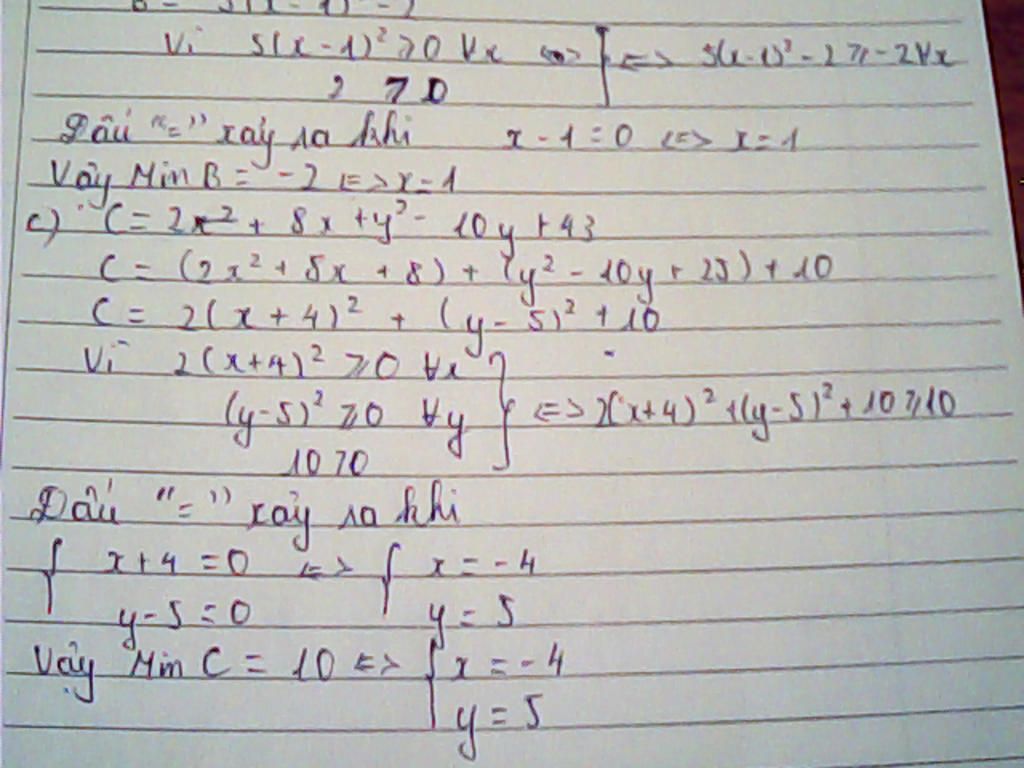 Vì 5(x-1)² ≥ 0 ∀x <=> } <=> 5(x-1)² - 2 ≥ -2 ∀x
2 > 0
Dấu "=" xảy ra khi x - 1 = 0 <=> x = 1
Vậy Min B = -2 <=> x = 1
c) C = 2x² + 8x + y² - 10y + 43
C = (2x² + 8x + 8) + (y² - 10y + 25) + 10
C = 2(x + 4)² + (y - 5)² + 10
Vì 2(x+4)² ≥ 0 ∀x
(y-5)² ≥ 0 ∀y } <=> 2(x+4)² + (y-5)² + 10 ≥ 10
10 > 0
Dấu "=" xảy ra khi
{ x + 4 = 0 <=> { x = -4
y - 5 = 0 y = 5
Vậy Min C = 10 <=> { x = -4
y = 5